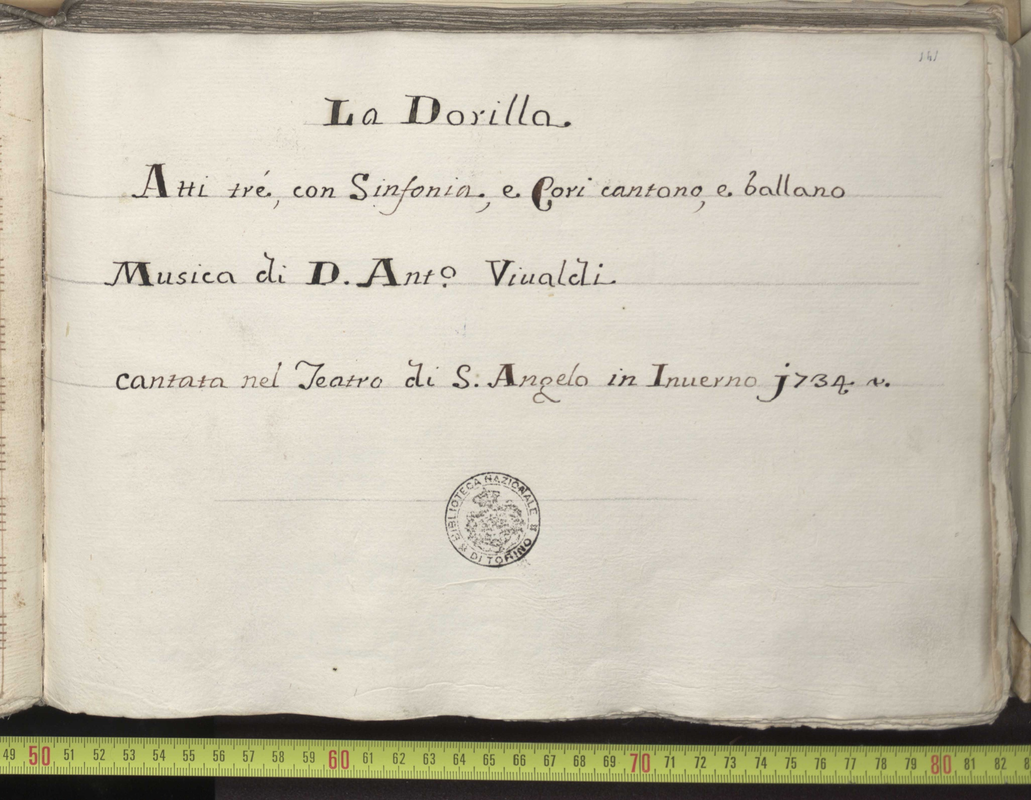 141
La Dorilla.
Atti tré, con Sinfonia, e Cori cantono, e ballano
Musica di D. Antº Viualdi.
cantata nel Teatro di S. Angelo in Inuerno j734 v.
BIBLIOTECA NAZIONALE DI TORINO
49 50 51 52 53 54 55 56 57 58 59 60 61 62 63 64 65 66 67 68 69 70 71 72 73 74 75 76 77 78 79 80 81 82